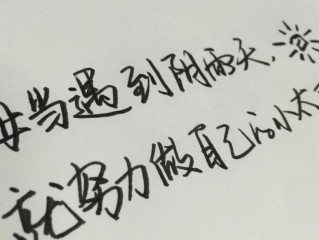 每当遇到阴雨天,
就努力做自己的小太